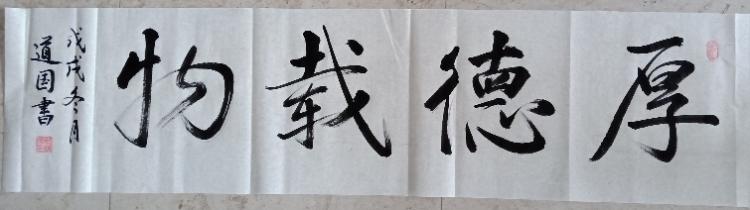 厚德载物
戊戌冬月
道国书